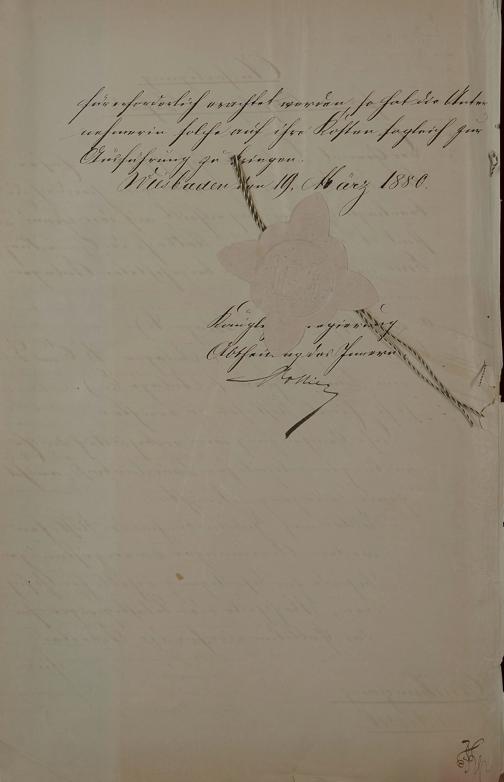 für erforderlich erachtet werden, so hat die Unter
nehmerin solche auf ihre Kosten sogleich zur
Ausführung zu bringen.
Wiesbaden den 19. März 1880.
Königl Regierung
Abtheilung des Innern